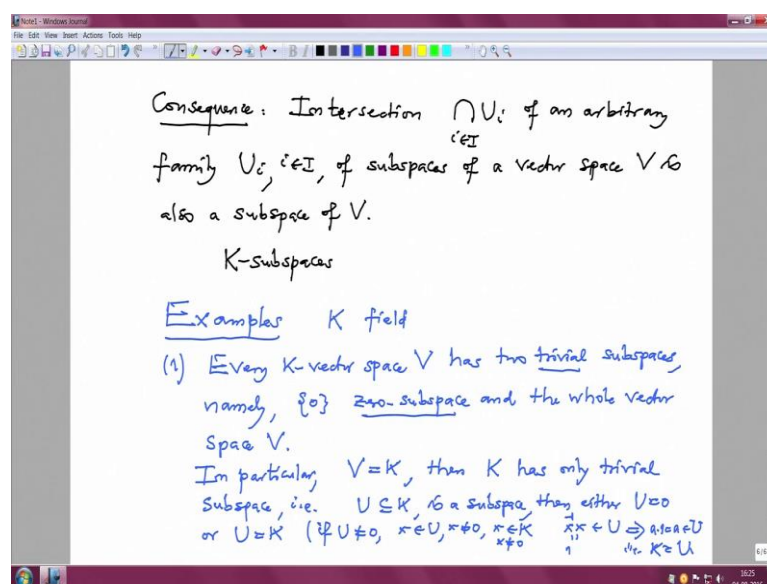 Note1 - Windows Journal
File Edit View Insert Actions Tools Help
Consequence: Intersection ⋂ Ui of an arbitrary
i∈I
family Ui, i∈I, of subspaces of a vector space V is
also a subspace of V.
K-subspaces
Examples K field
(1) Every K-vector space V has two trivial subspaces,
namely, {0} zero-subspace and the whole vector
space V.
In particular, V=K, then K has only trivial
subspace, i.e. U ⊆ K, is a subspace, then either U=0
or U=K (if U≠0, x∈U, x≠0, x∈K x⁻¹x ∈ U ⇒ a·1=a∈U
x≠0 1 i.e. K=U
6/6
16:25